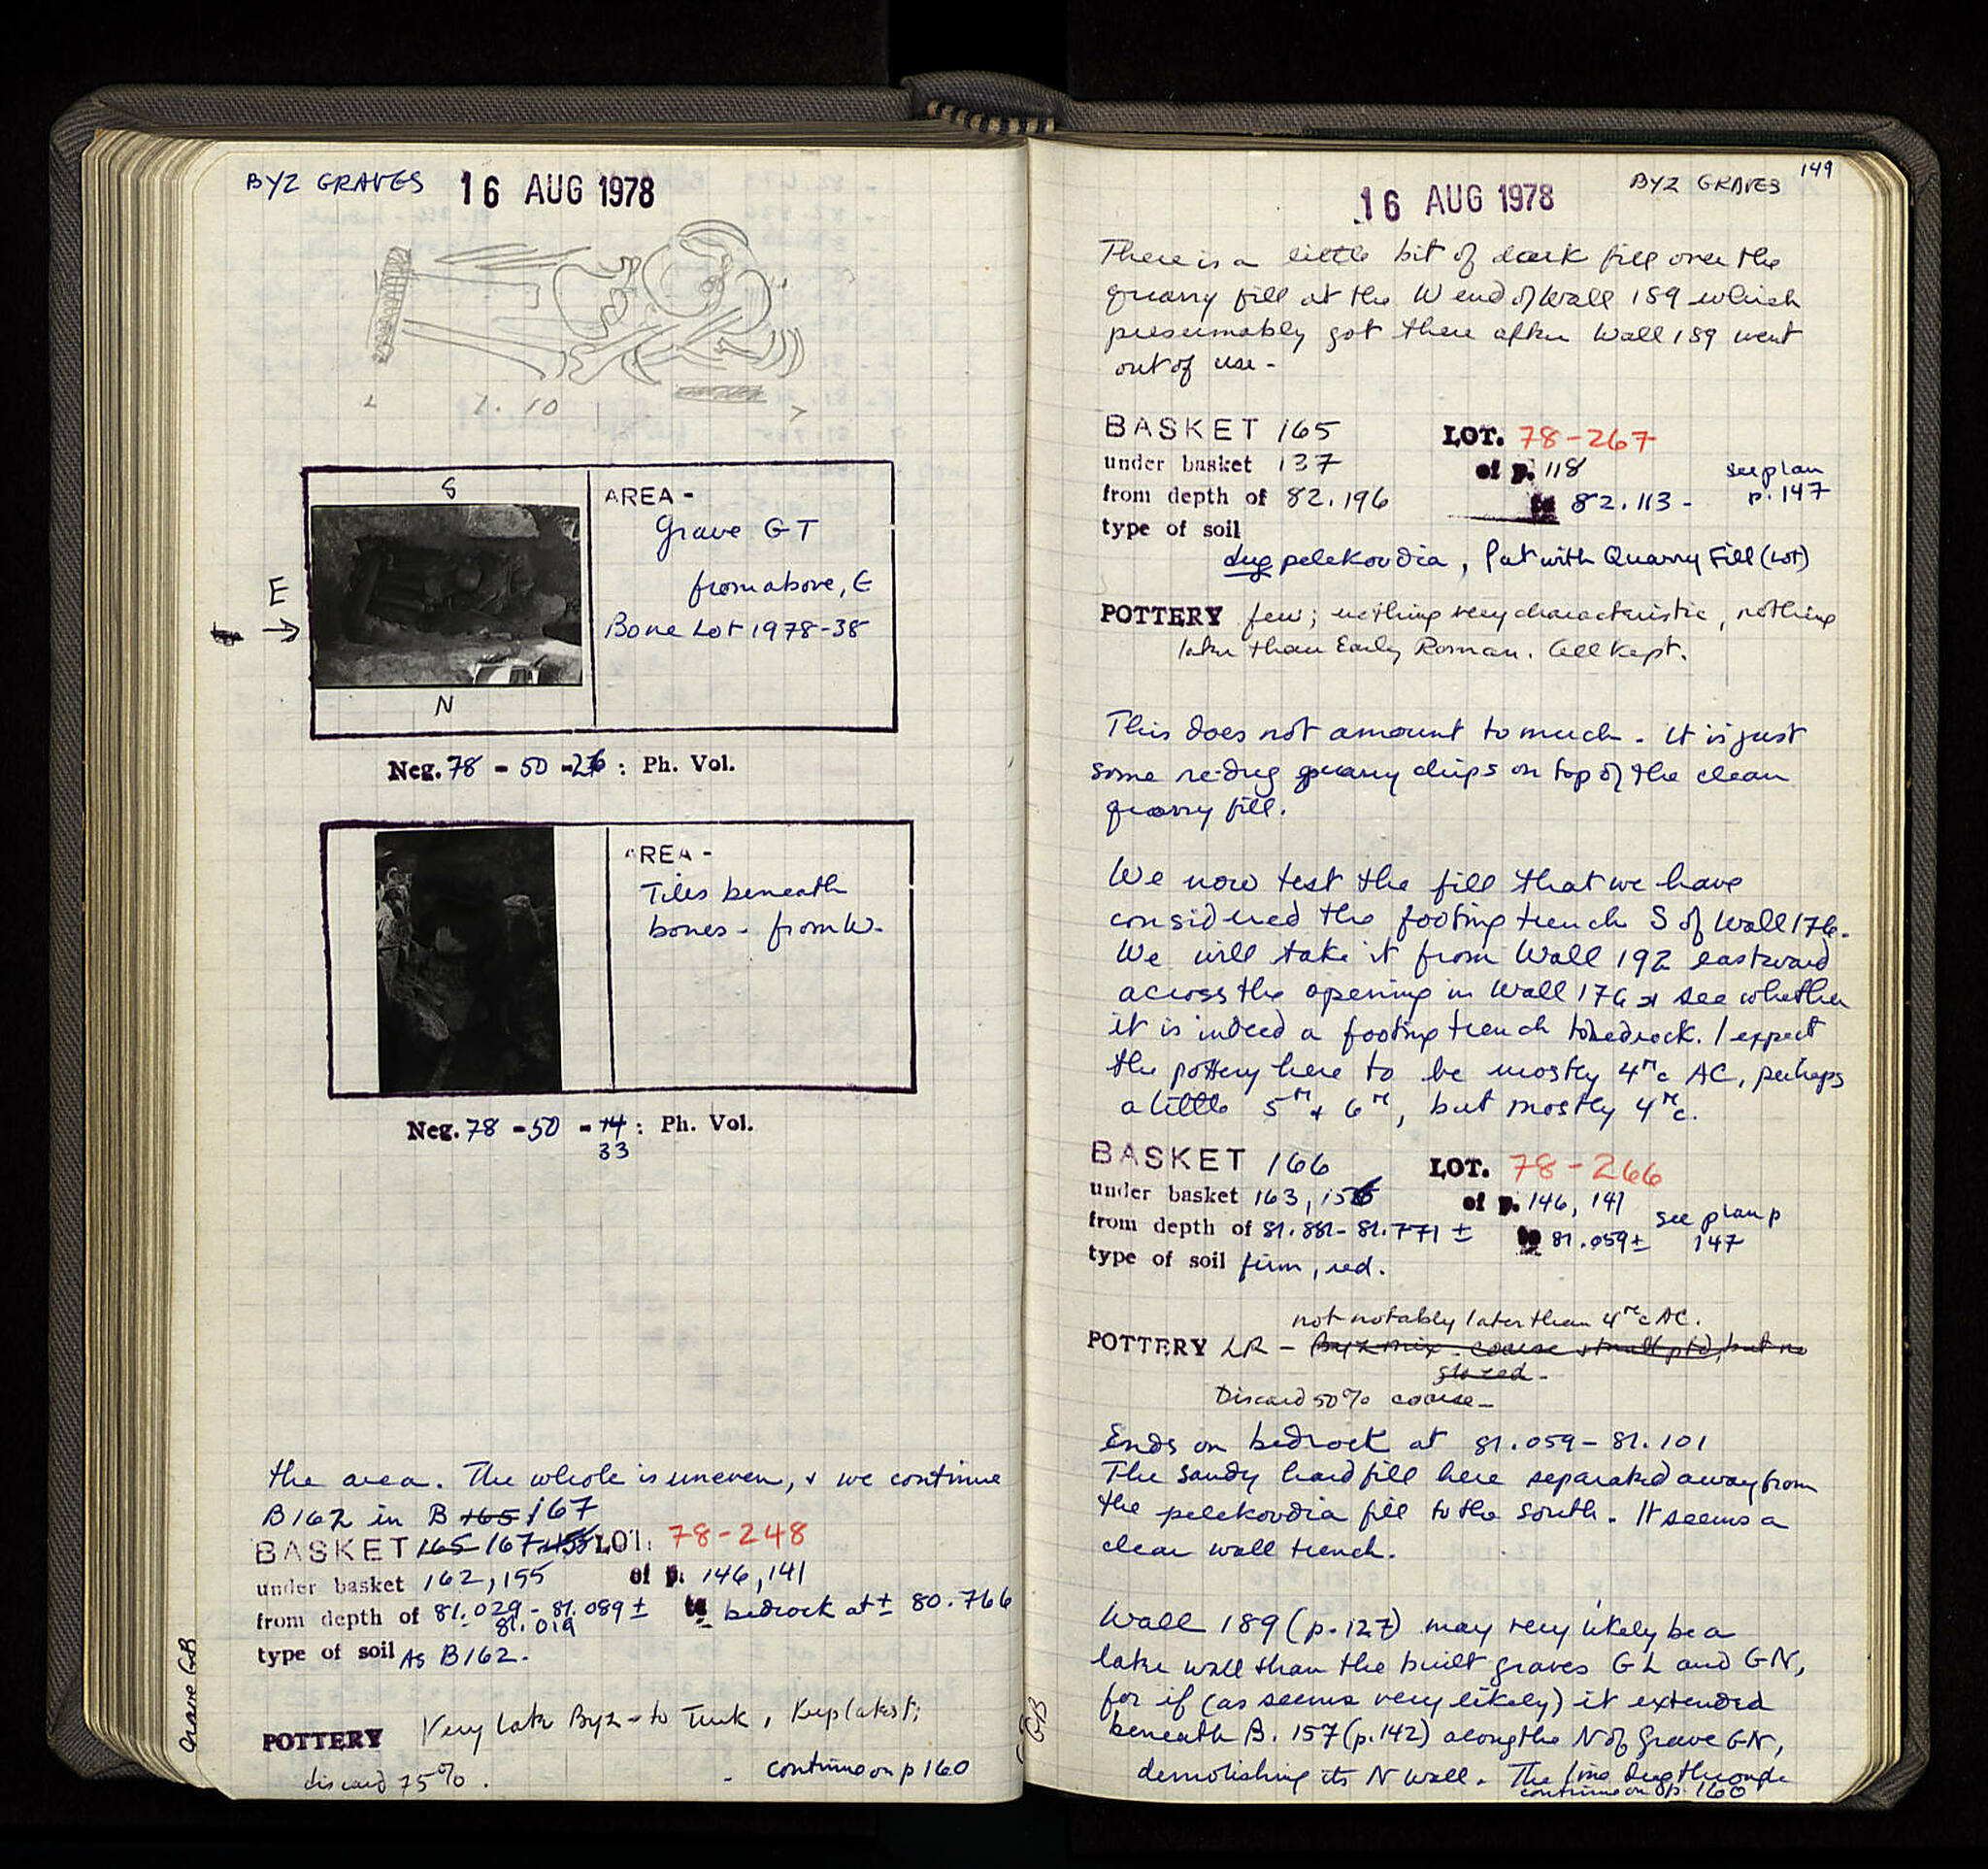 BYZ GRAVES 16 AUG 1978
1.10
S
AREA -
Grave GT
from above, E
Bone Lot 1978-38
E
N
Neg. 78 - 50 - 26 : Ph. Vol.
AREA -
Tiles beneath
bones - from W.
Neg. 78 - 50 - 14 : Ph. Vol.
33
the area. The whole is uneven, & we continue
B162 in B 165 167
BASKET 165 167 LOT. 78-248
under basket 162, 155 of p. 146, 141
from depth of 81.029 - 81.089 ± to bedrock at ± 80.766
81.019
type of soil As B162.
POTTERY Very Late Byz - to Turk, Keep latest;
discard 75%.
continue on p 160
Grave GB
149
16 AUG 1978 BYZ GRAVES
There is a little bit of dark fill over the
quarry fill at the W end of Wall 189 which
presumably got there after Wall 189 went
out of use -
BASKET 165 LOT. 78-267
under basket 137 of p. 118 see plan
from depth of 82.196 to 82.113 - p. 147
type of soil
dug pelekoudia, Put with Quarry Fill (Lot)
POTTERY few; nothing very characteristic, nothing
later than Early Roman. All kept.
This does not amount to much - it is just
some re-dug quarry chips on top of the clean
quarry fill.
We now test the fill that we have
considered the footing trench S of Wall 176.
We will take it from Wall 192 eastward
across the opening in Wall 176 & see whether
it is indeed a footing trench to bedrock. I expect
the pottery here to be mostly 4th c AC, perhaps
a little 5th & 6th, but mostly 4th c.
BASKET 166 LOT. 78-266
under basket 163, 155 of p. 146, 141 see plan p
from depth of 81.881 - 81.771 ± to 81.059 ± 147
type of soil firm, red.
not notably later than 4th c AC.
POTTERY LR - Byz mix - coarse + small ptd, but no
glazed -
Discard 50% coarse -
Ends on bedrock at 81.059 - 81.101
The sandy hard fill here separated away from
the pelekoudia fill to the south. It seems a
clear wall trench.
Wall 189 (p. 127) may very likely be a
later wall than the built graves GL and GN,
for if (as seems very likely) it extended
beneath B. 157 (p. 142) along the N of Grave GN,
demolishing its N wall. The line dug through
continue on p. 160
GB